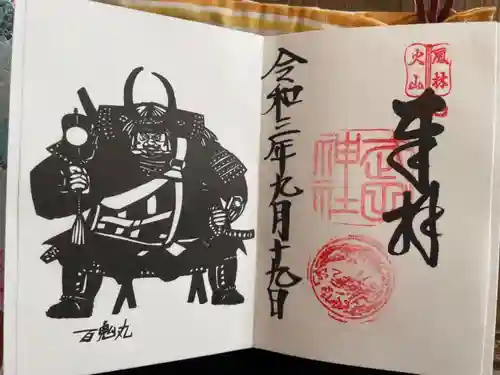 風林
火山
奉拝
武田
神社
令和三年九月十九日
百鬼丸